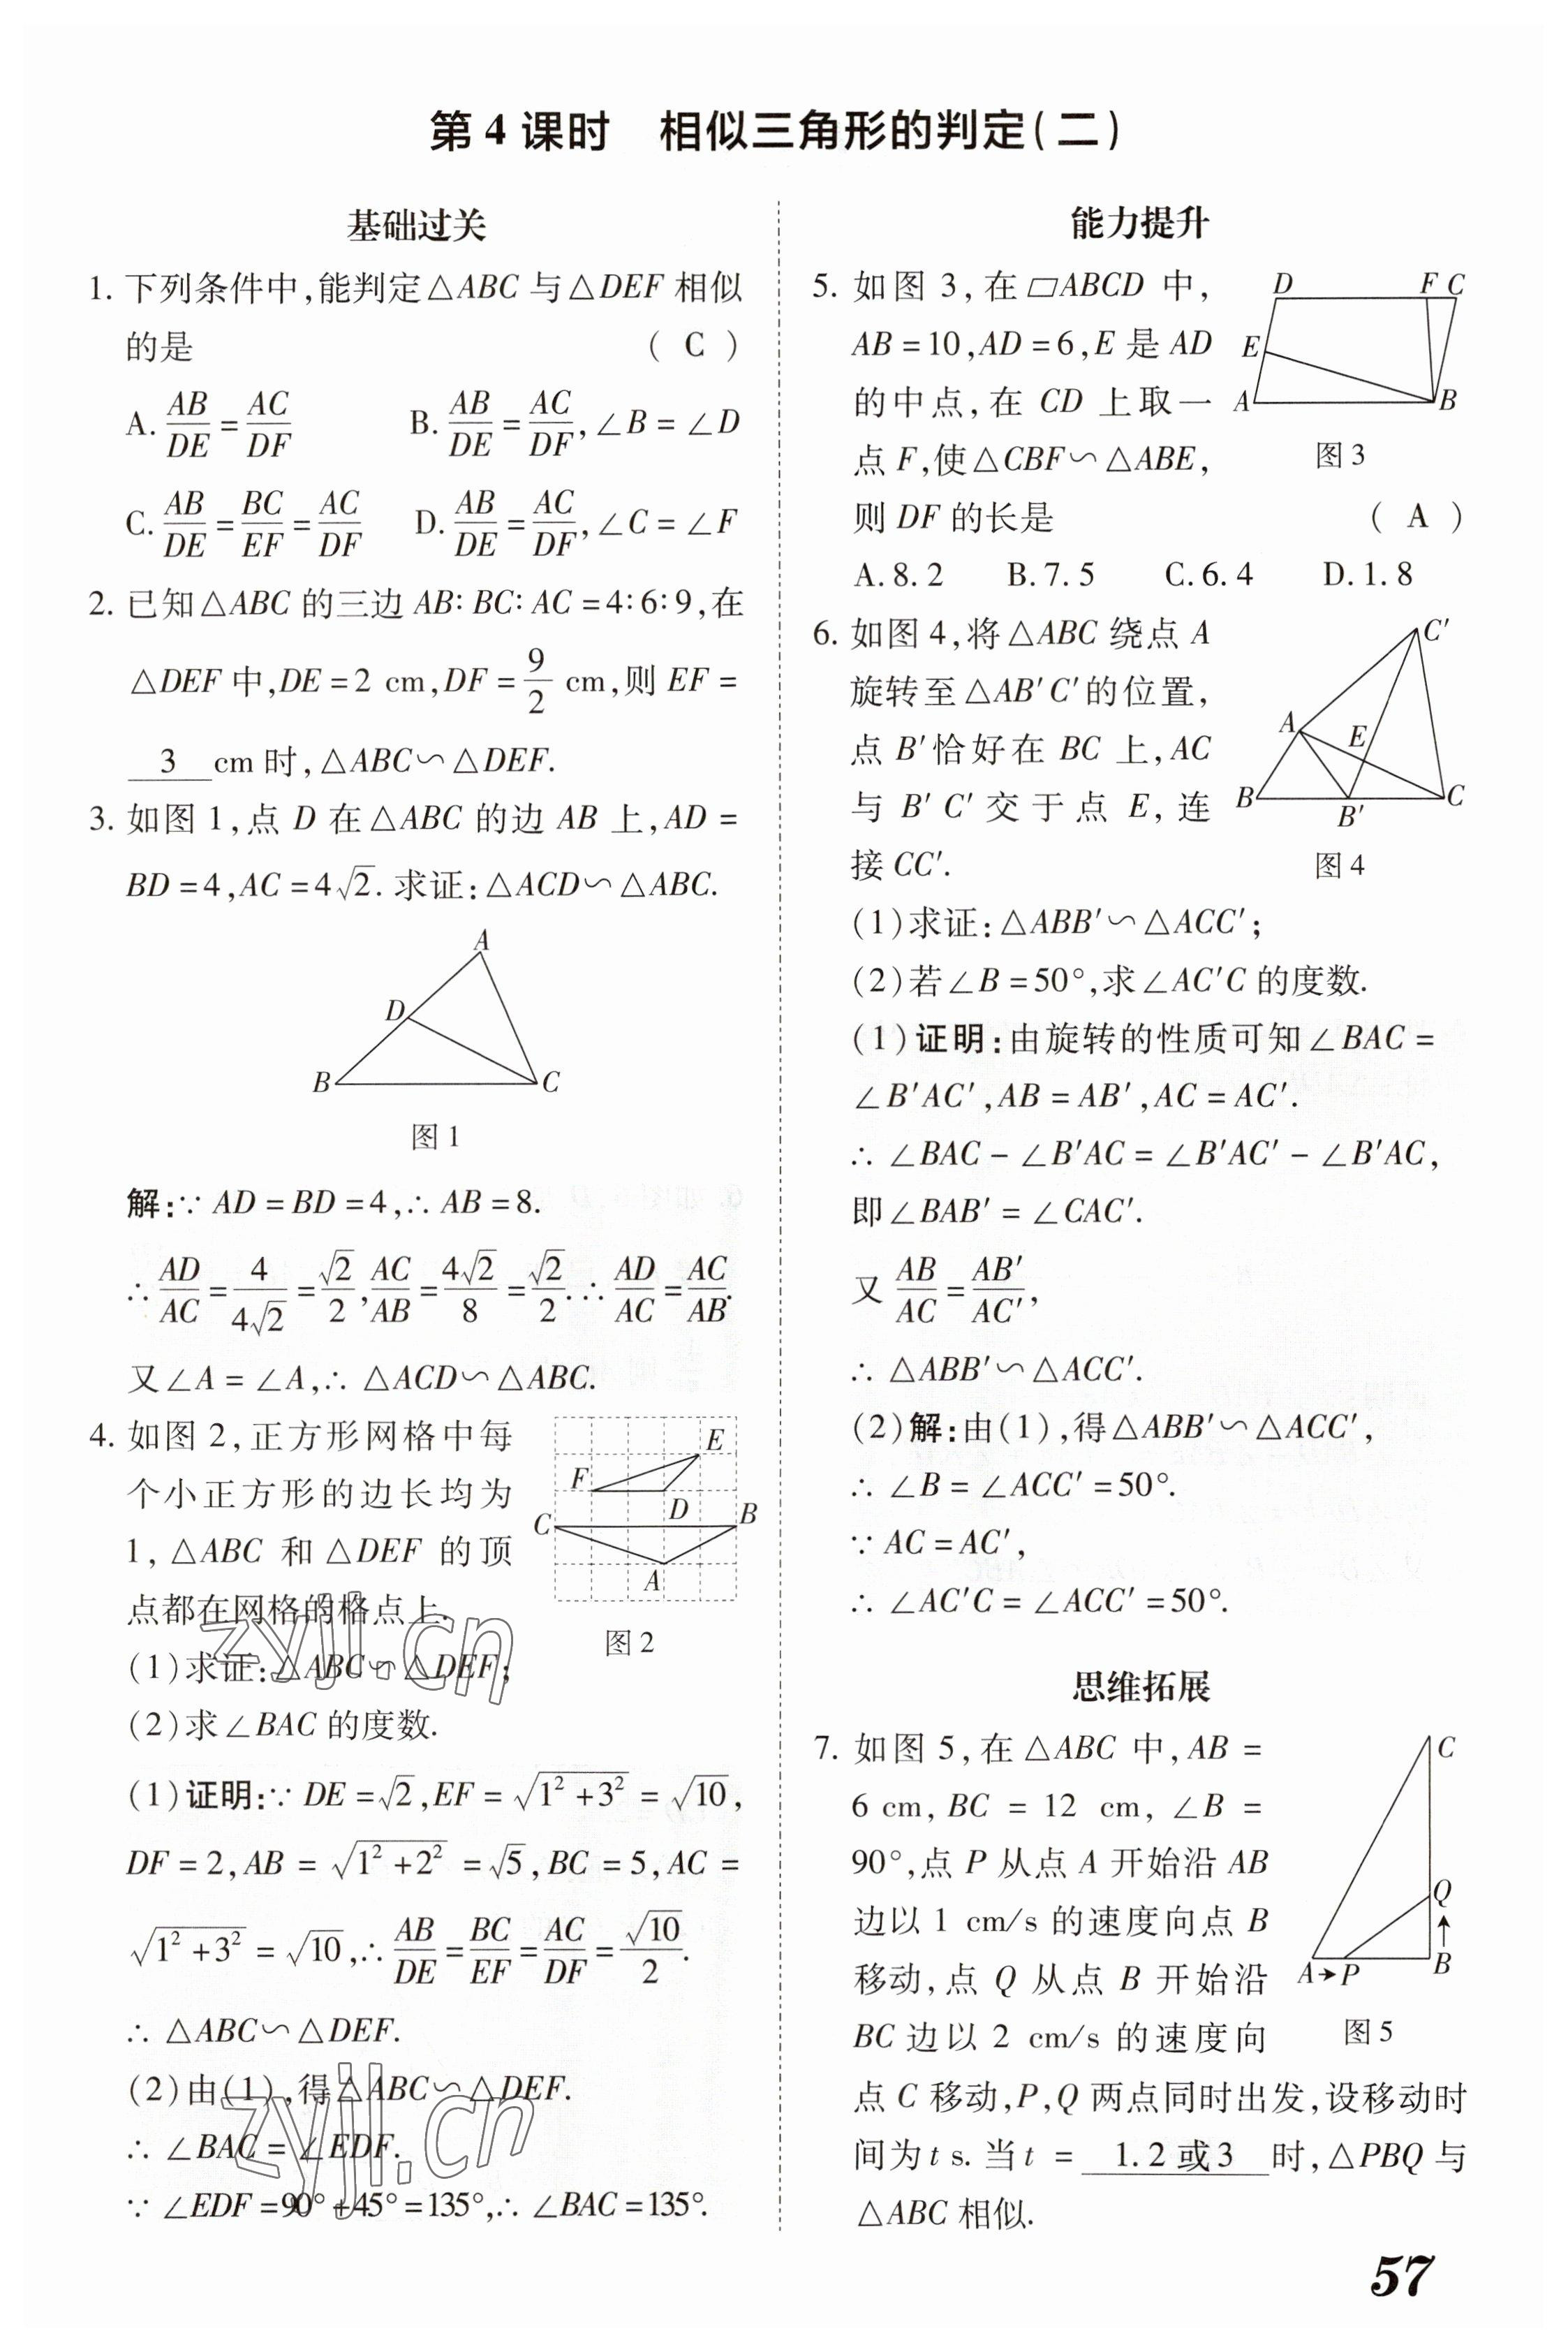 第 4 课时　相似三角形的判定(二)
基础过关
1. 下列条件中,能判定△ABC 与△DEF 相似
的是 ( C )
A. AB/DE = AC/DF　B. AB/DE = AC/DF, ∠B = ∠D
C. AB/DE = BC/EF = AC/DF　D. AB/DE = AC/DF, ∠C = ∠F
2. 已知△ABC 的三边 AB∶BC∶AC = 4∶6∶9,在
△DEF 中,DE = 2 cm,DF = 9/2 cm,则 EF =
3 cm 时,△ABC∽△DEF.
3. 如图 1,点 D 在△ABC 的边 AB 上,AD =
BD = 4,AC = 4√2. 求证:△ACD∽△ABC.
A
D
B C
图 1
解:∵ AD = BD = 4,∴ AB = 8.
∴ AD/AC = 4/4√2 = √2/2, AC/AB = 4√2/8 = √2/2. ∴ AD/AC = AC/AB.
又∠A = ∠A,∴ △ACD∽△ABC.
4. 如图 2,正方形网格中每
个小正方形的边长均为
1,△ABC 和△DEF 的顶
点都在网格的格点上.
E
F
D
C B
A
图 2
(1)求证:△ABC∽△DEF;
(2)求∠BAC 的度数.
(1)证明:∵ DE = √2,EF = √(1² + 3²) = √10,
DF = 2,AB = √(1² + 2²) = √5,BC = 5,AC =
√(1² + 3²) = √10,∴ AB/DE = BC/EF = AC/DF = √10/2.
∴ △ABC∽△DEF.
(2)由(1),得△ABC∽△DEF.
∴ ∠BAC = ∠EDF.
∵ ∠EDF = 90° + 45° = 135°,∴ ∠BAC = 135°.
zyjl.cn
zyjl.cn
能力提升
5. 如图 3,在▱ABCD 中,
AB = 10,AD = 6,E 是 AD
的中点,在 CD 上取一
点 F,使△CBF∽△ABE,
则 DF 的长是 ( A )
D F C
E
A B
图 3
A. 8. 2　B. 7. 5　C. 6. 4　D. 1. 8
6. 如图 4,将△ABC 绕点 A
旋转至△AB′C′的位置,
点 B′恰好在 BC 上,AC
与 B′C′交于点 E,连
接 CC′.
C′
A E
B B′ C
图 4
(1)求证:△ABB′∽△ACC′;
(2)若∠B = 50°,求∠AC′C 的度数.
(1)证明:由旋转的性质可知∠BAC =
∠B′AC′,AB = AB′,AC = AC′.
∴ ∠BAC − ∠B′AC = ∠B′AC′ − ∠B′AC,
即∠BAB′ = ∠CAC′.
又 AB/AC = AB′/AC′,
∴ △ABB′∽△ACC′.
(2)解:由(1),得△ABB′∽△ACC′,
∴ ∠B = ∠ACC′ = 50°.
∵ AC = AC′,
∴ ∠AC′C = ∠ACC′ = 50°.
思维拓展
7. 如图 5,在△ABC 中,AB =
6 cm,BC = 12 cm,∠B =
90°,点 P 从点 A 开始沿 AB
边以 1 cm/s 的速度向点 B
移动,点 Q 从点 B 开始沿
BC 边以 2 cm/s 的速度向
点 C 移动,P,Q 两点同时出发,设移动时
间为 t s. 当 t = 1. 2 或 3 时,△PBQ 与
△ABC 相似.
C
Q
A→P B
图 5
57